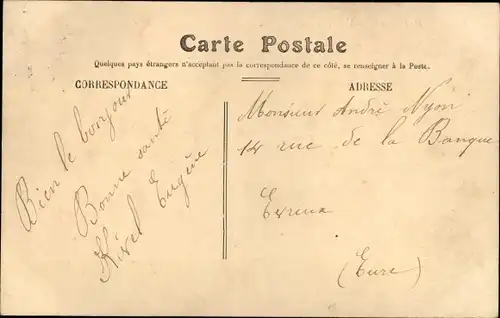 Carte Postale
Quelques pays étrangers n'acceptant pas la correspondance de ce côté, se renseigner à la Poste.
CORRESPONDANCE
ADRESSE
Bien le bonjour
Bonne santé
Eugène
Monsieur André Nyon
14 rue de la Banque
(Eure)